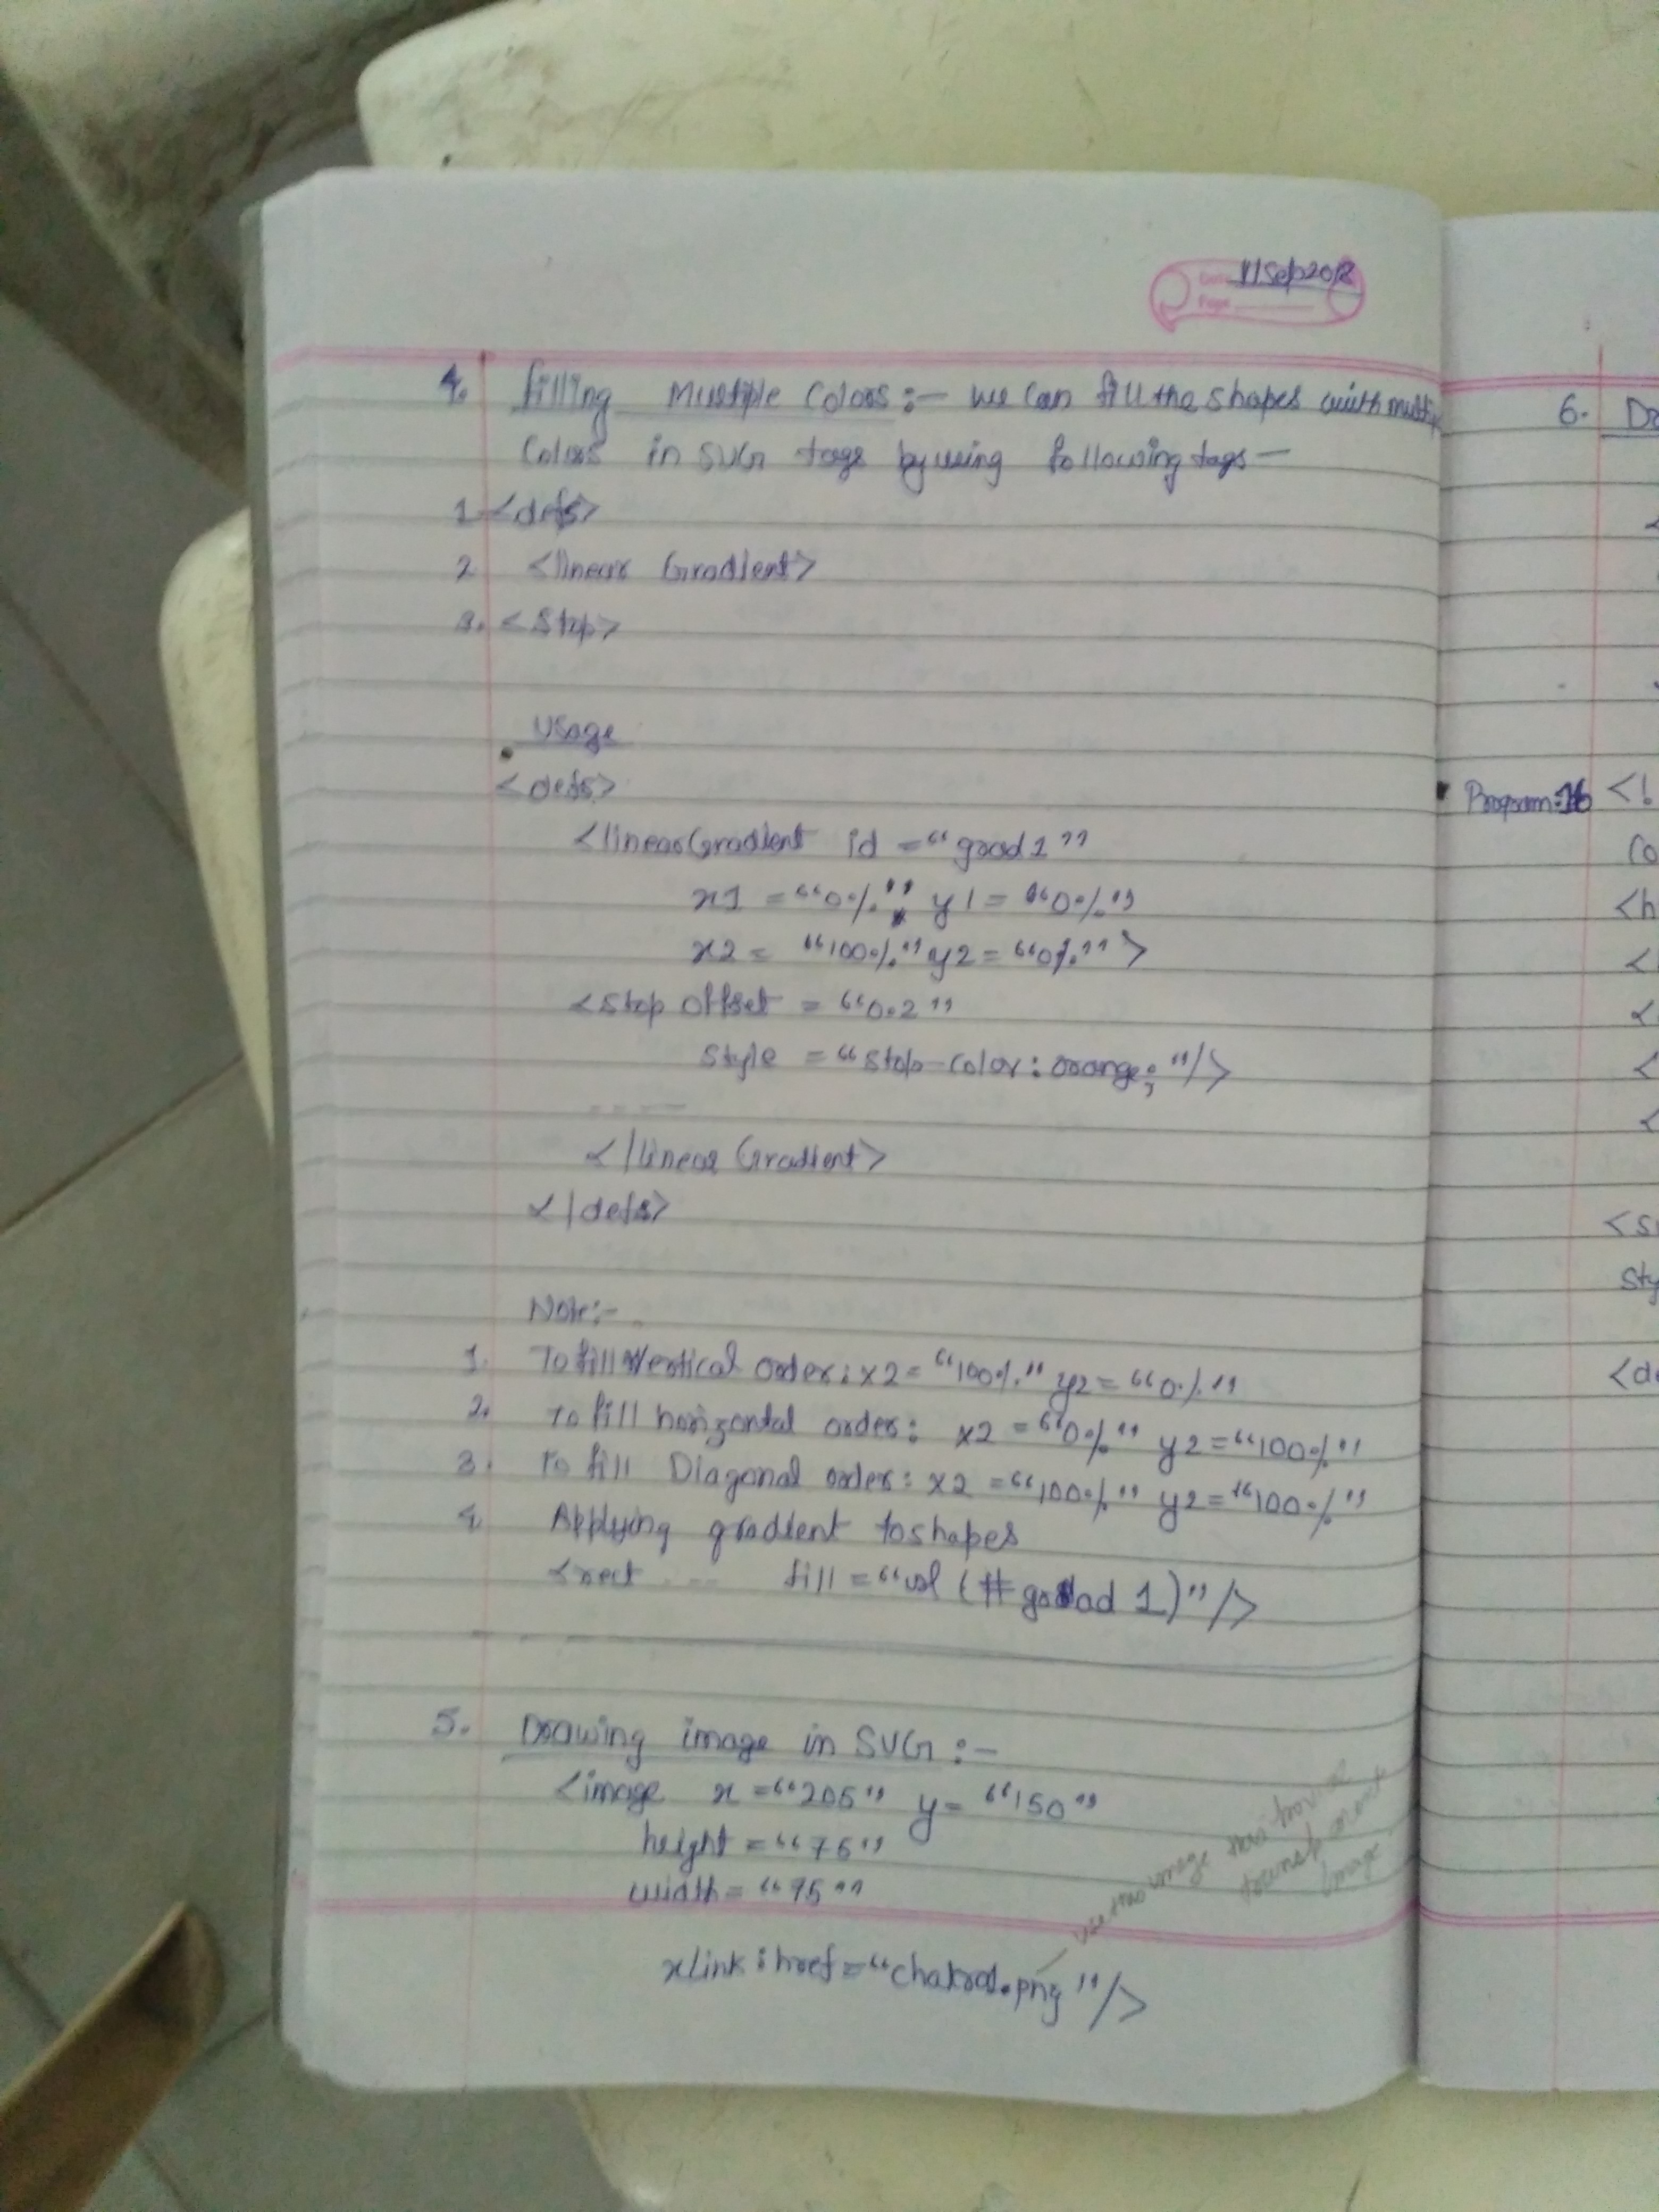 Date 11Sep2018
Page
4. filling Multiple Colors :- we can fill the shapes with multip
Colors in SVG tags by using following tags —
1. <defs>
2. <linear Gradient>
3. <stop>
Usage
<defs>
<linearGradient id = "grad1"
x1 = "0%" y1 = "0%"
x2 = "100%" y2 = "0%" >
<stop offset = "0.2"
style = "stop-color: orange;"/>
-----
</linear Gradient>
</defs>
Note:-
1. To fill Vertical order: x2 = "100%" y2 = "0%"
2. To fill horizontal order: x2 = "0%" y2 = "100%"
3. To fill Diagonal order: x2 = "100%" y2 = "100%"
4. Applying gradient to shapes
<rect ---- fill = "url (#grad 1)"/>
5. Drawing image in SVG :-
<image x = "205" y = "150"
height = "75"
width = "75"
xlink:href = "chakra.png"/>
use this image
image
6.
Program:16 <!
<h
<
<
<
<
<s
sty
<de